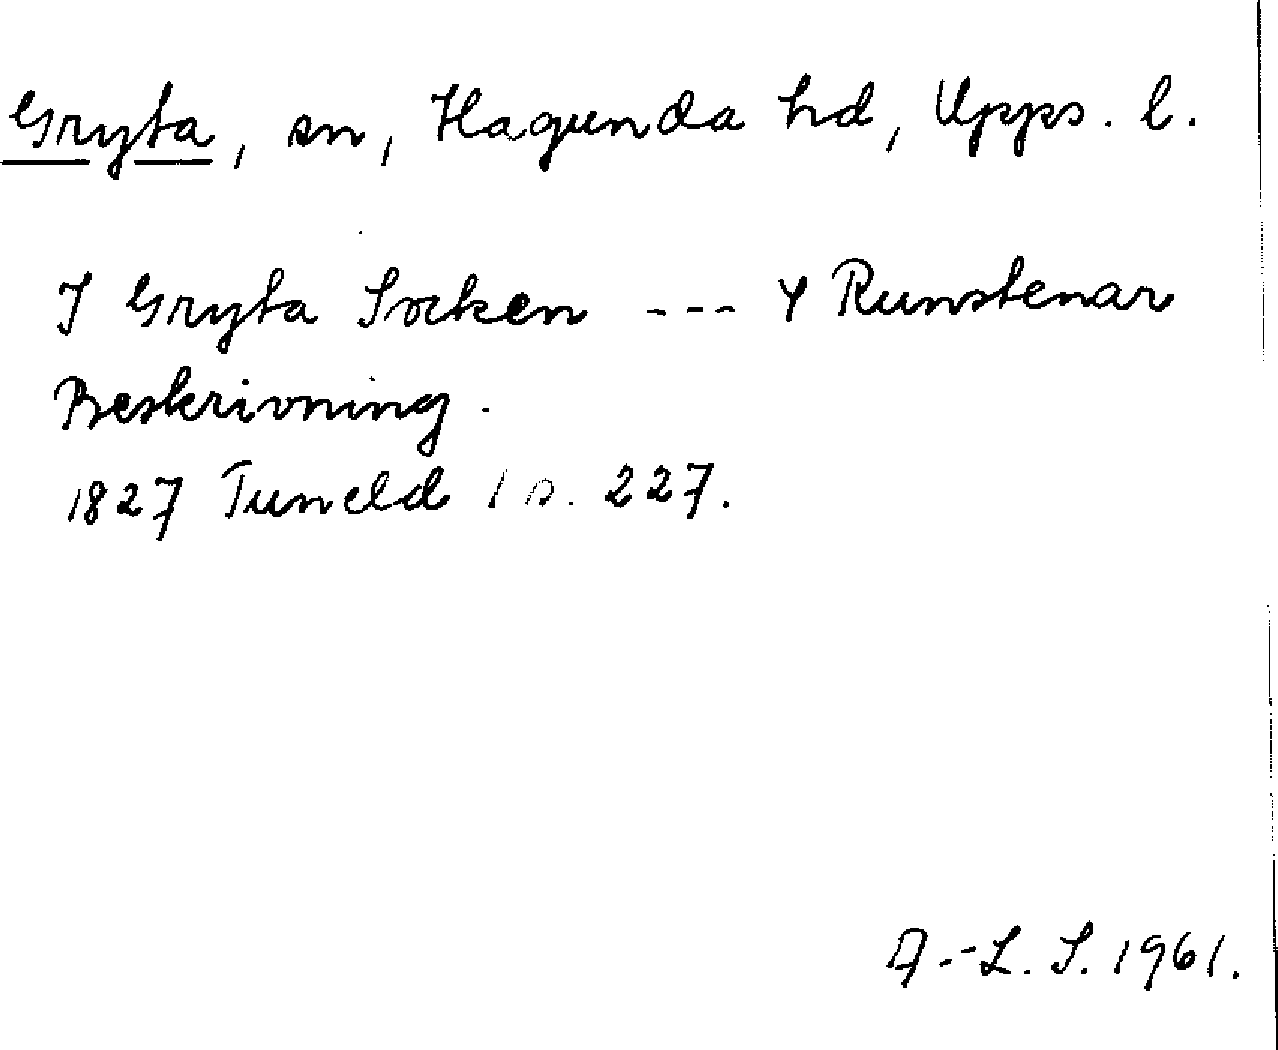 Gryta, sn, Hagunda hd, Upps. l.
I Gryta Socken --- 4 Runstenar
Beskrivning.
1827 Tuneld 1 s. 227.
A.-L. S. 1961.